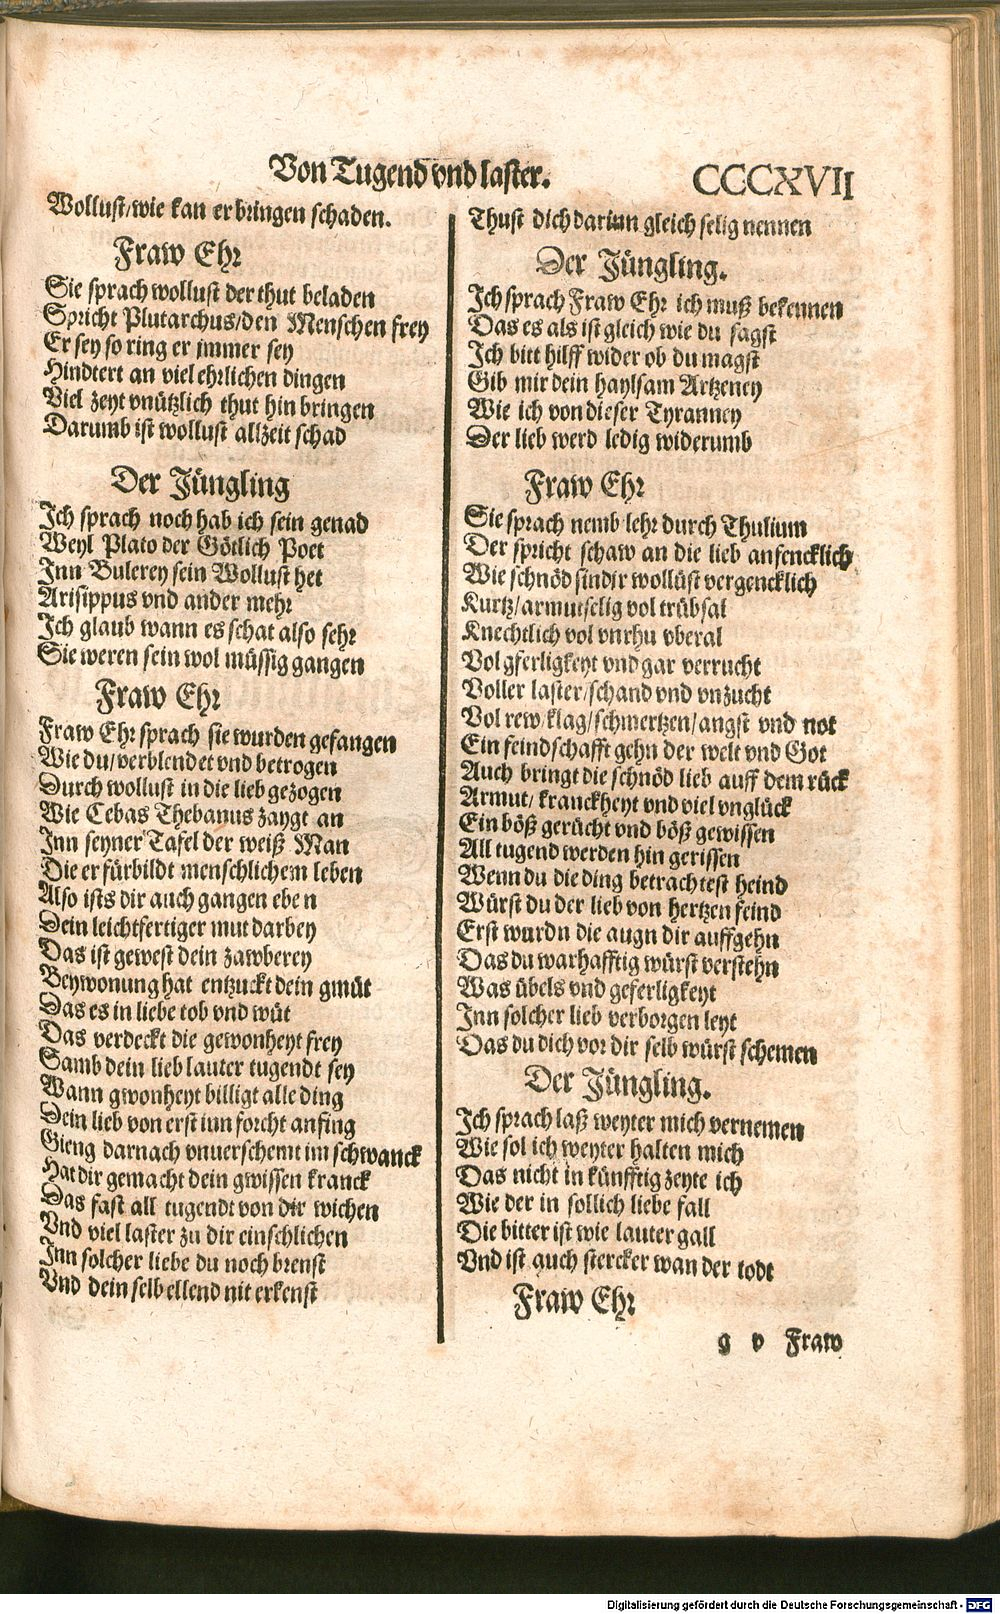 Von Tugend vnd laster.
CCCXVII
Wollust/wie kan er bringen schaden.
Fraw Ehr
Sie sprach wollust der thut beladen
Spricht Plutarchus/den Menschen frey
Er sey so ring er jmmer sey
Hindtert an viel ehrlichen dingen
Viel zeyt vnützlich thut hin bringen
Darumb ist wollust allzeit schad
Der Jüngling
Ich sprach noch hab ich sein genad
Weyl Plato der Götlich Poet
Inn Bulerey sein Wollust het
Arisippus vnd ander mehr
Ich glaub wann es schat also sehr
Sie weren sein wol müssig gangen
Fraw Ehr
Fraw Ehr sprach sie wurden gefangen
Wie du/verblendet vnd betrogen
Durch wollust in die lieb gezogen
Wie Cebas Thebanus zaygt an
Inn seyner Tafel der weiß Man
Die er fürbildt menschlichem leben
Also ists dir auch gangen eben
Dein leichtfertiger mut darbey
Das ist gewest dein zawberey
Beywonung hat entzuckt dein gmüt
Das es in liebe tob vnd wüt
Das verdeckt die gewonheyt frey
Samb dein lieb lauter tugendt sey
Wann gwonheyt billigt alle ding
Dein lieb von erst inn forcht anfing
Gieng darnach vnuerschemt im schwanck
Hat dir gemacht dein gwissen kranck
Das fast all tugendt von dir wichen
Vnd viel laster zu dir einschlichen
Inn solcher liebe du noch brenst
Vnd dein selb ellend nit erkenst
Thust dich darinn gleich selig nennen
Der Jüngling.
Ich sprach Fraw Ehr ich muß bekennen
Das es als ist gleich wie du sagst
Ich bitt hilff wider ob du magst
Gib mir dein haylsam Artzeney
Wie ich von dieser Tyranney
Der lieb werd ledig widerumb
Fraw Ehr
Sie sprach nemb lehr durch Thulium
Der spricht schaw an die lieb anfencklich
Wie schnöd sind ir wollüst vergencklich
Kurtz/armutselig vol trübsal
Knechtlich vol vnrhu vberal
Vol gferligkeyt vnd gar verrucht
Voller laster/schand vnd vnzucht
Vol rew/klag/schmertzen/angst vnd not
Ein feindschafft gehn der welt vnd Got
Auch bringt die schnöd lieb auff dem rück
Armut/kranckheyt vnd viel vnglück
Ein böß gerücht vnd böß gewissen
All tugend werden hin gerissen
Wenn du die ding betrachtest heind
Würst du der lieb von hertzen feind
Erst wurdn die augn dir auffgehn
Das du warhafftig würst verstehn
Was übels vnd geferligkeyt
Inn solcher lieb verborgen leyt
Das du dich vor dir selb würst schemen
Der Jüngling.
Ich sprach laß weyter mich vernemen
Wie sol ich weyter halten mich
Das nicht in künfftig zeyte ich
Wie der in sollich liebe fall
Die bitter ist wie lauter gall
Vnd ist auch stercker wan der todt
Fraw Ehr
g v Fraw
Digitalisierung gefördert durch die Deutsche Forschungsgemeinschaft - DFG